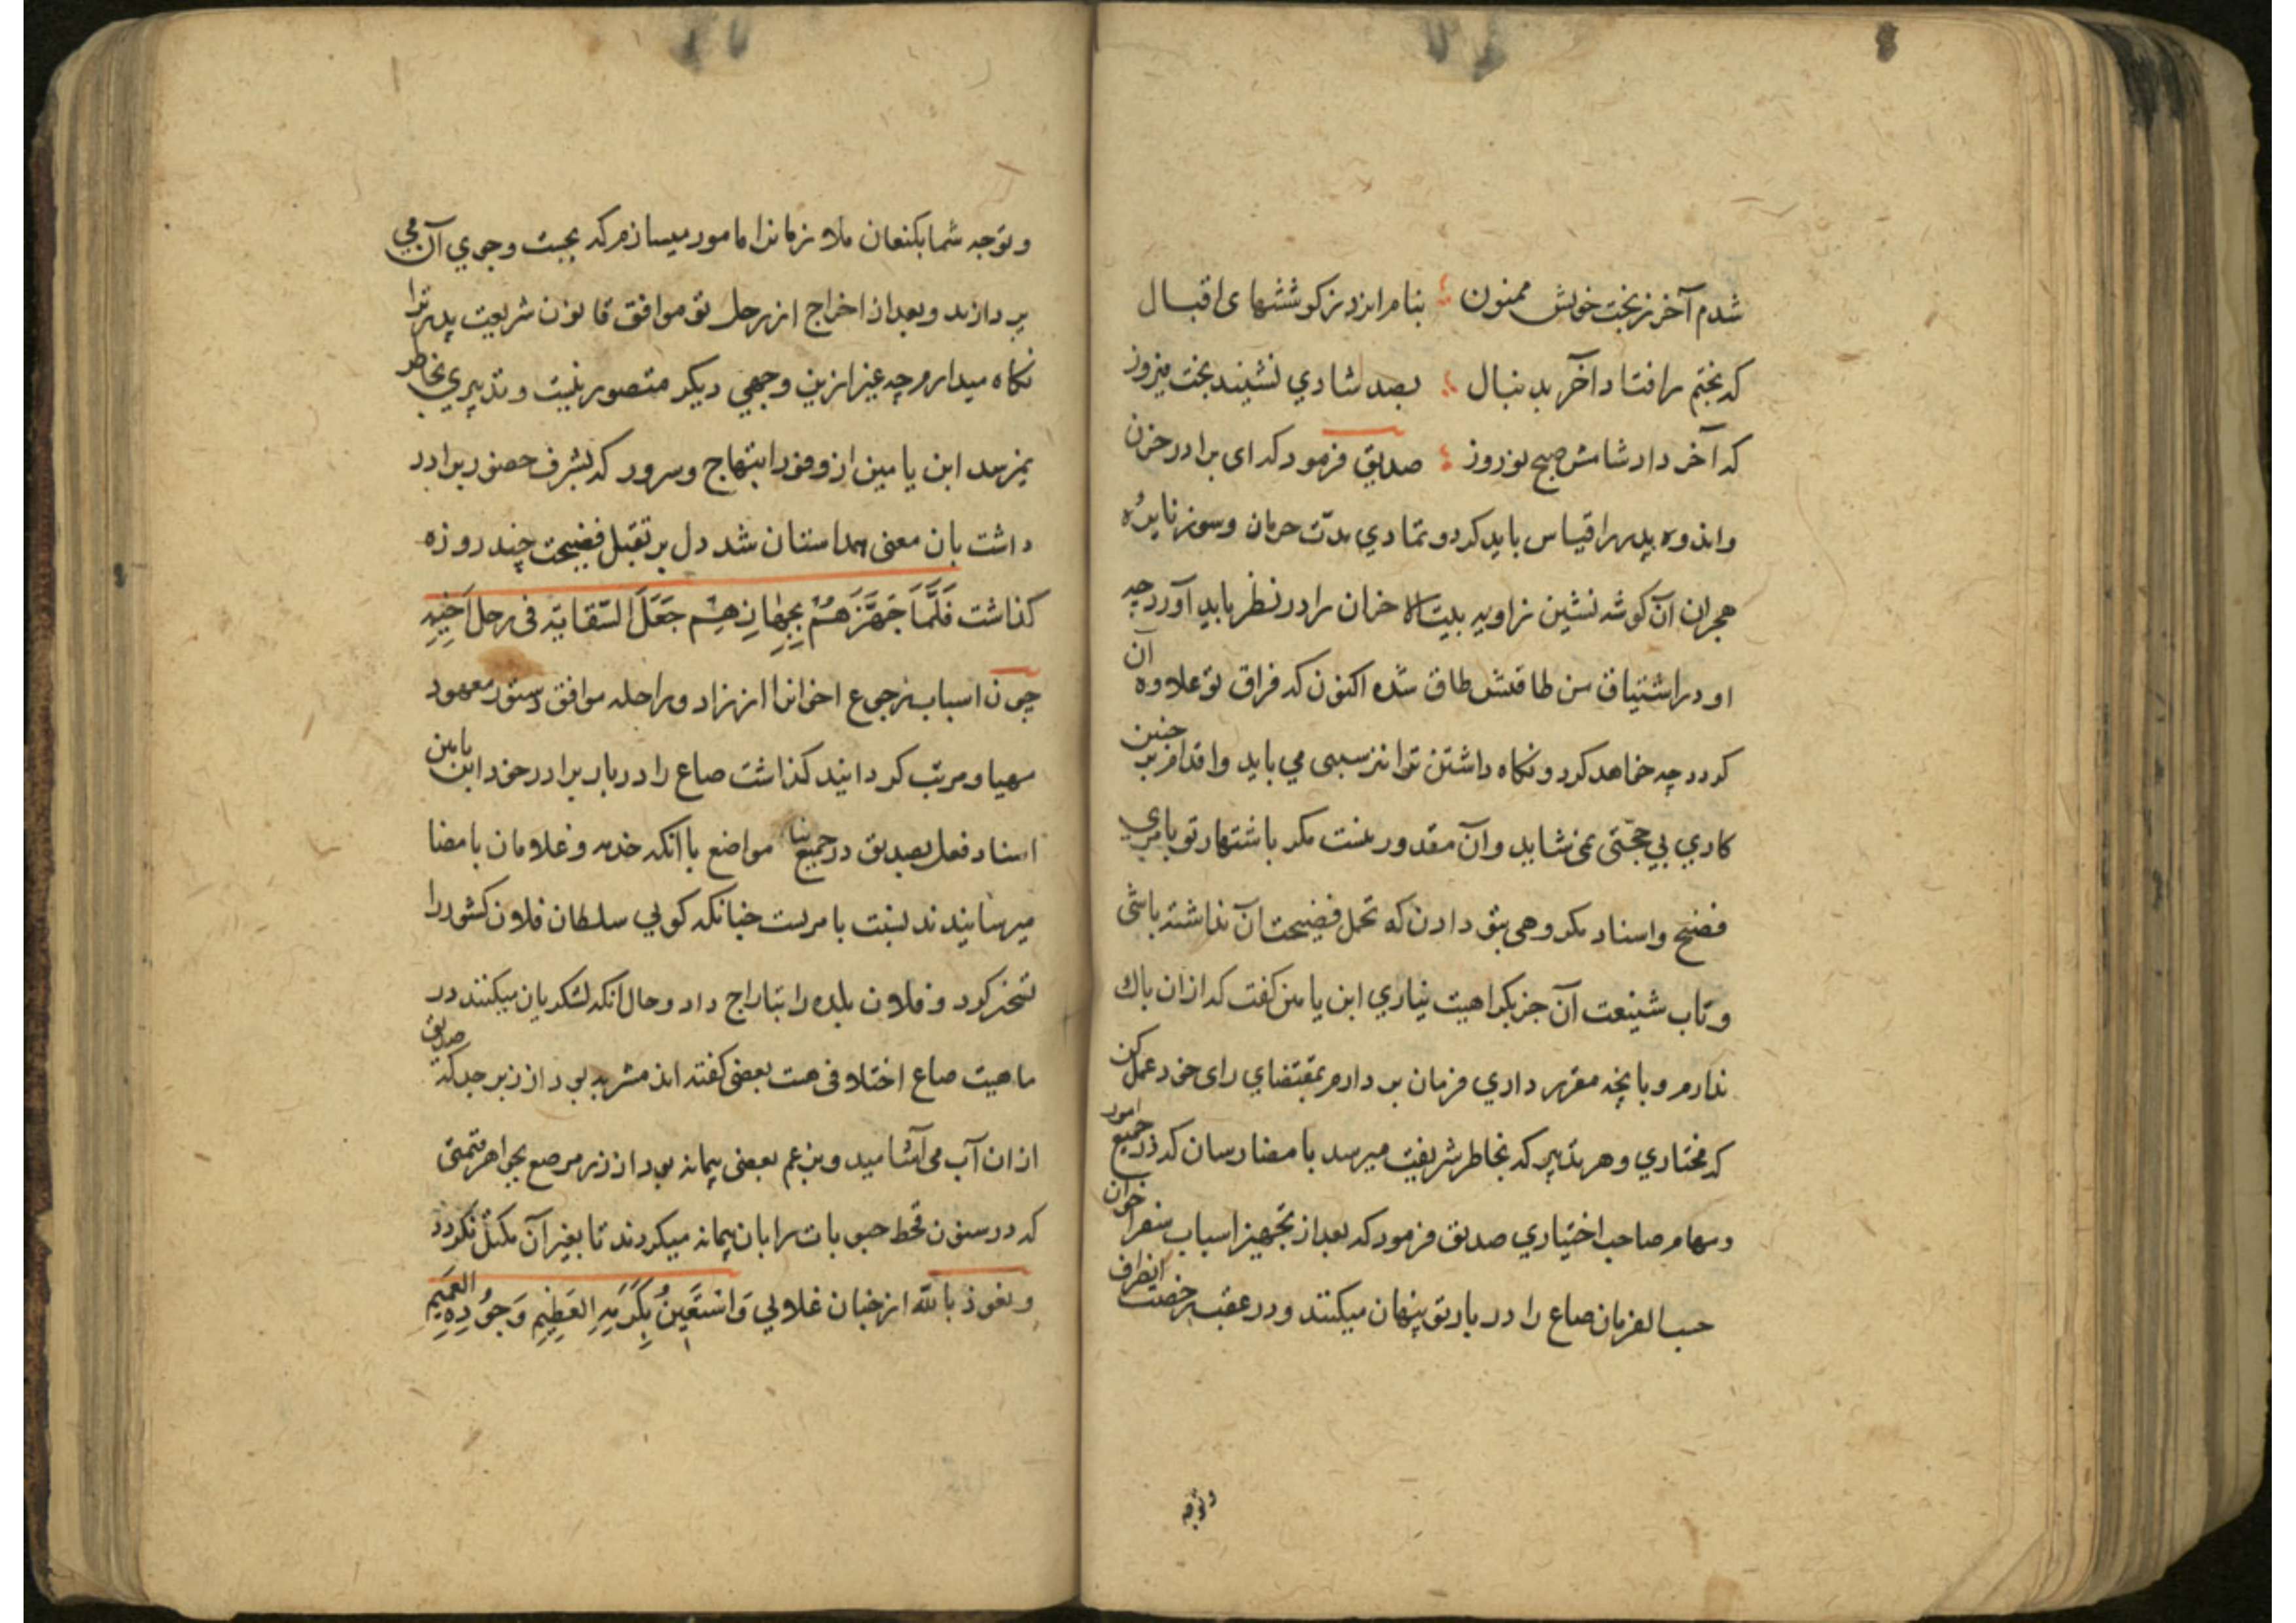 شدم آخر ز بخت خویش ممنون ؛ بنامرایزد ز کوششهای اقبال
که بختم را فتاد آخر بدنبال ؛ بصد شادی نشیند بخت فیروز
که آخر داد شامش صبح نوروز ؛ صدیق فرمود که ای برادر حزن
واندوه پدر را قیاس باید کرد و تمادی مدّت حرمان وسوز نایرٔه
هجران آن کوشه نشین زاویه بیت الاحزان را در نظر باید آورد چه
او در اشتیاق من طاقتش طاق شده اکنون که فراق تو علاوه آن
کردد چه خواهد کرد و نکاه داشتن ترا نیز سببی می باید واقدام بر چنین
کاری بی حجّتی نمی شاید وآن مقدور نیست مکر باشتهار تو بامری
فضیح واسناد مکروهی بتو دادن که تحمل فضیحت آن نداشته باشی
وتاب شنیعت آن جز بکراهیت نیاری ابن یامین کفت که ازان باك
ندارم وبانچه مقرر داری فرمان بردارم بمقتضای رای خود عمل کن
که مختاری وهر تدبیر که بخاطر شریفت میرسد بامضا رسان که در جمیع امور
ومهام صاحب اختیاری صدیق فرمود که بعد از تجهیز اسباب سفر اخوان
حسب الفرمان صاع را در بار تو پنهان میکنند ودر عقب رخصت انصراف
وتوجه
وتوجه شما بکنعان ملازمانرا مامور میسازم که بجست وجوی آن می
پردازند وبعد از اخراج از رحل تو موافق قانون شریعت پدر ترا
نکاه میدارم چه غیر ازین وجهی دیکر متصور نیست وتدبیری بخاطر
نمیرسد ابن یامین از وفور ابتهاج وسرور که بشرف حضور برادر
داشت بان معنی همداستان شد دل بر تقبل فضیحت چند روزه
کذاشت فَلَمَّا جَهَّزَهُمْ بِجِهَازِهِمْ جَعَلَ السّقایة فی رحل اَخِیهِ
چون اسباب رجوع اخوانرا از زاد وراحله موافق دستور معهود
مهیا ومرتب کردانیدند کذاشت صاع را در بار برادر خود ابن یامین
اسناد فعل بصدیق در جمیع مواضع بنا باآنکه خدم وغلامان بامضا
میرسانیدند نسبت بامریست چنانکه کوئی سلطان فلان کشور را
تسخیر کرد وفلان بلده را بتاراج داد وحال آنکه لشکریان میکنند در
ماهیت صاع اختلافی هست بعضی کفته اند مشربه بود از زبرجد که صدیق
ازان آب می آشامید وبزعم بعضی پیمانه بود از زر مرصع بجواهر قیمتی
که در سنون قحط حبوبات را بان پیمانه میکردند تا بغیر آن مکتل نکردد
ونعوذ بالله از چنان غلائی وَاسْتَعِینُ بِکَرَمِهِ العَظِیمِ وَجُودِهِ العَمِیمِ